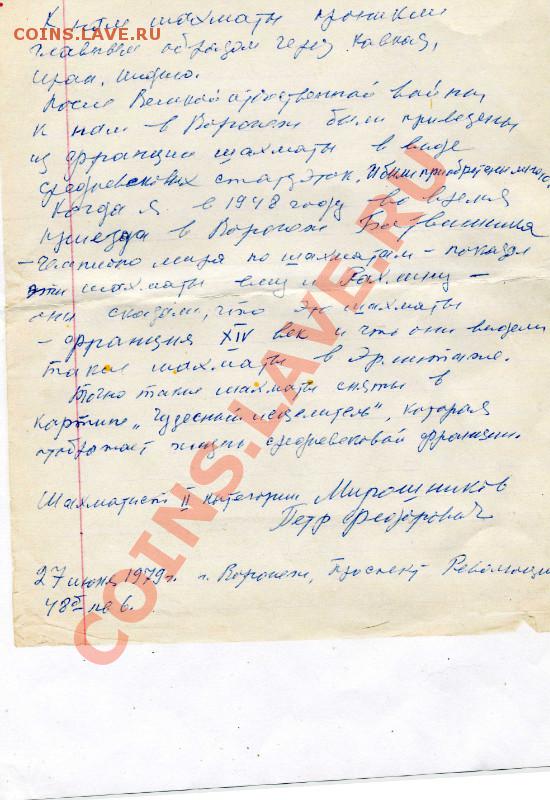 COINS.LAVE.RU
COINS.LAVE.RU
К нам шахматы проникли
главным образом через Кавказ,
Иран, Индию.
После Великой отечественной войны
к нам в Воронеж были привезены
из Франции шахматы в виде
средневековых статуэток. И были приобретены мною
Когда я в 1948 году во время
приезда в Воронеж Ботвинника
- Чемпиона мира по шахматам - показал
эти шахматы ему и Рахлину -
они сказали, что это шахматы
- Франция XIV век и что они видели
такие шахматы в Эрмитаже.
Точно такие шахматы сняты в
картине „Чудесный исцелитель", которая
отображает жизнь средневековой Франции.
Шахматист II категории Мирошников
Петр Федорович
27 июня 1979 г. г. Воронеж, Проспект Революции
48
COINS.LAVE.RU